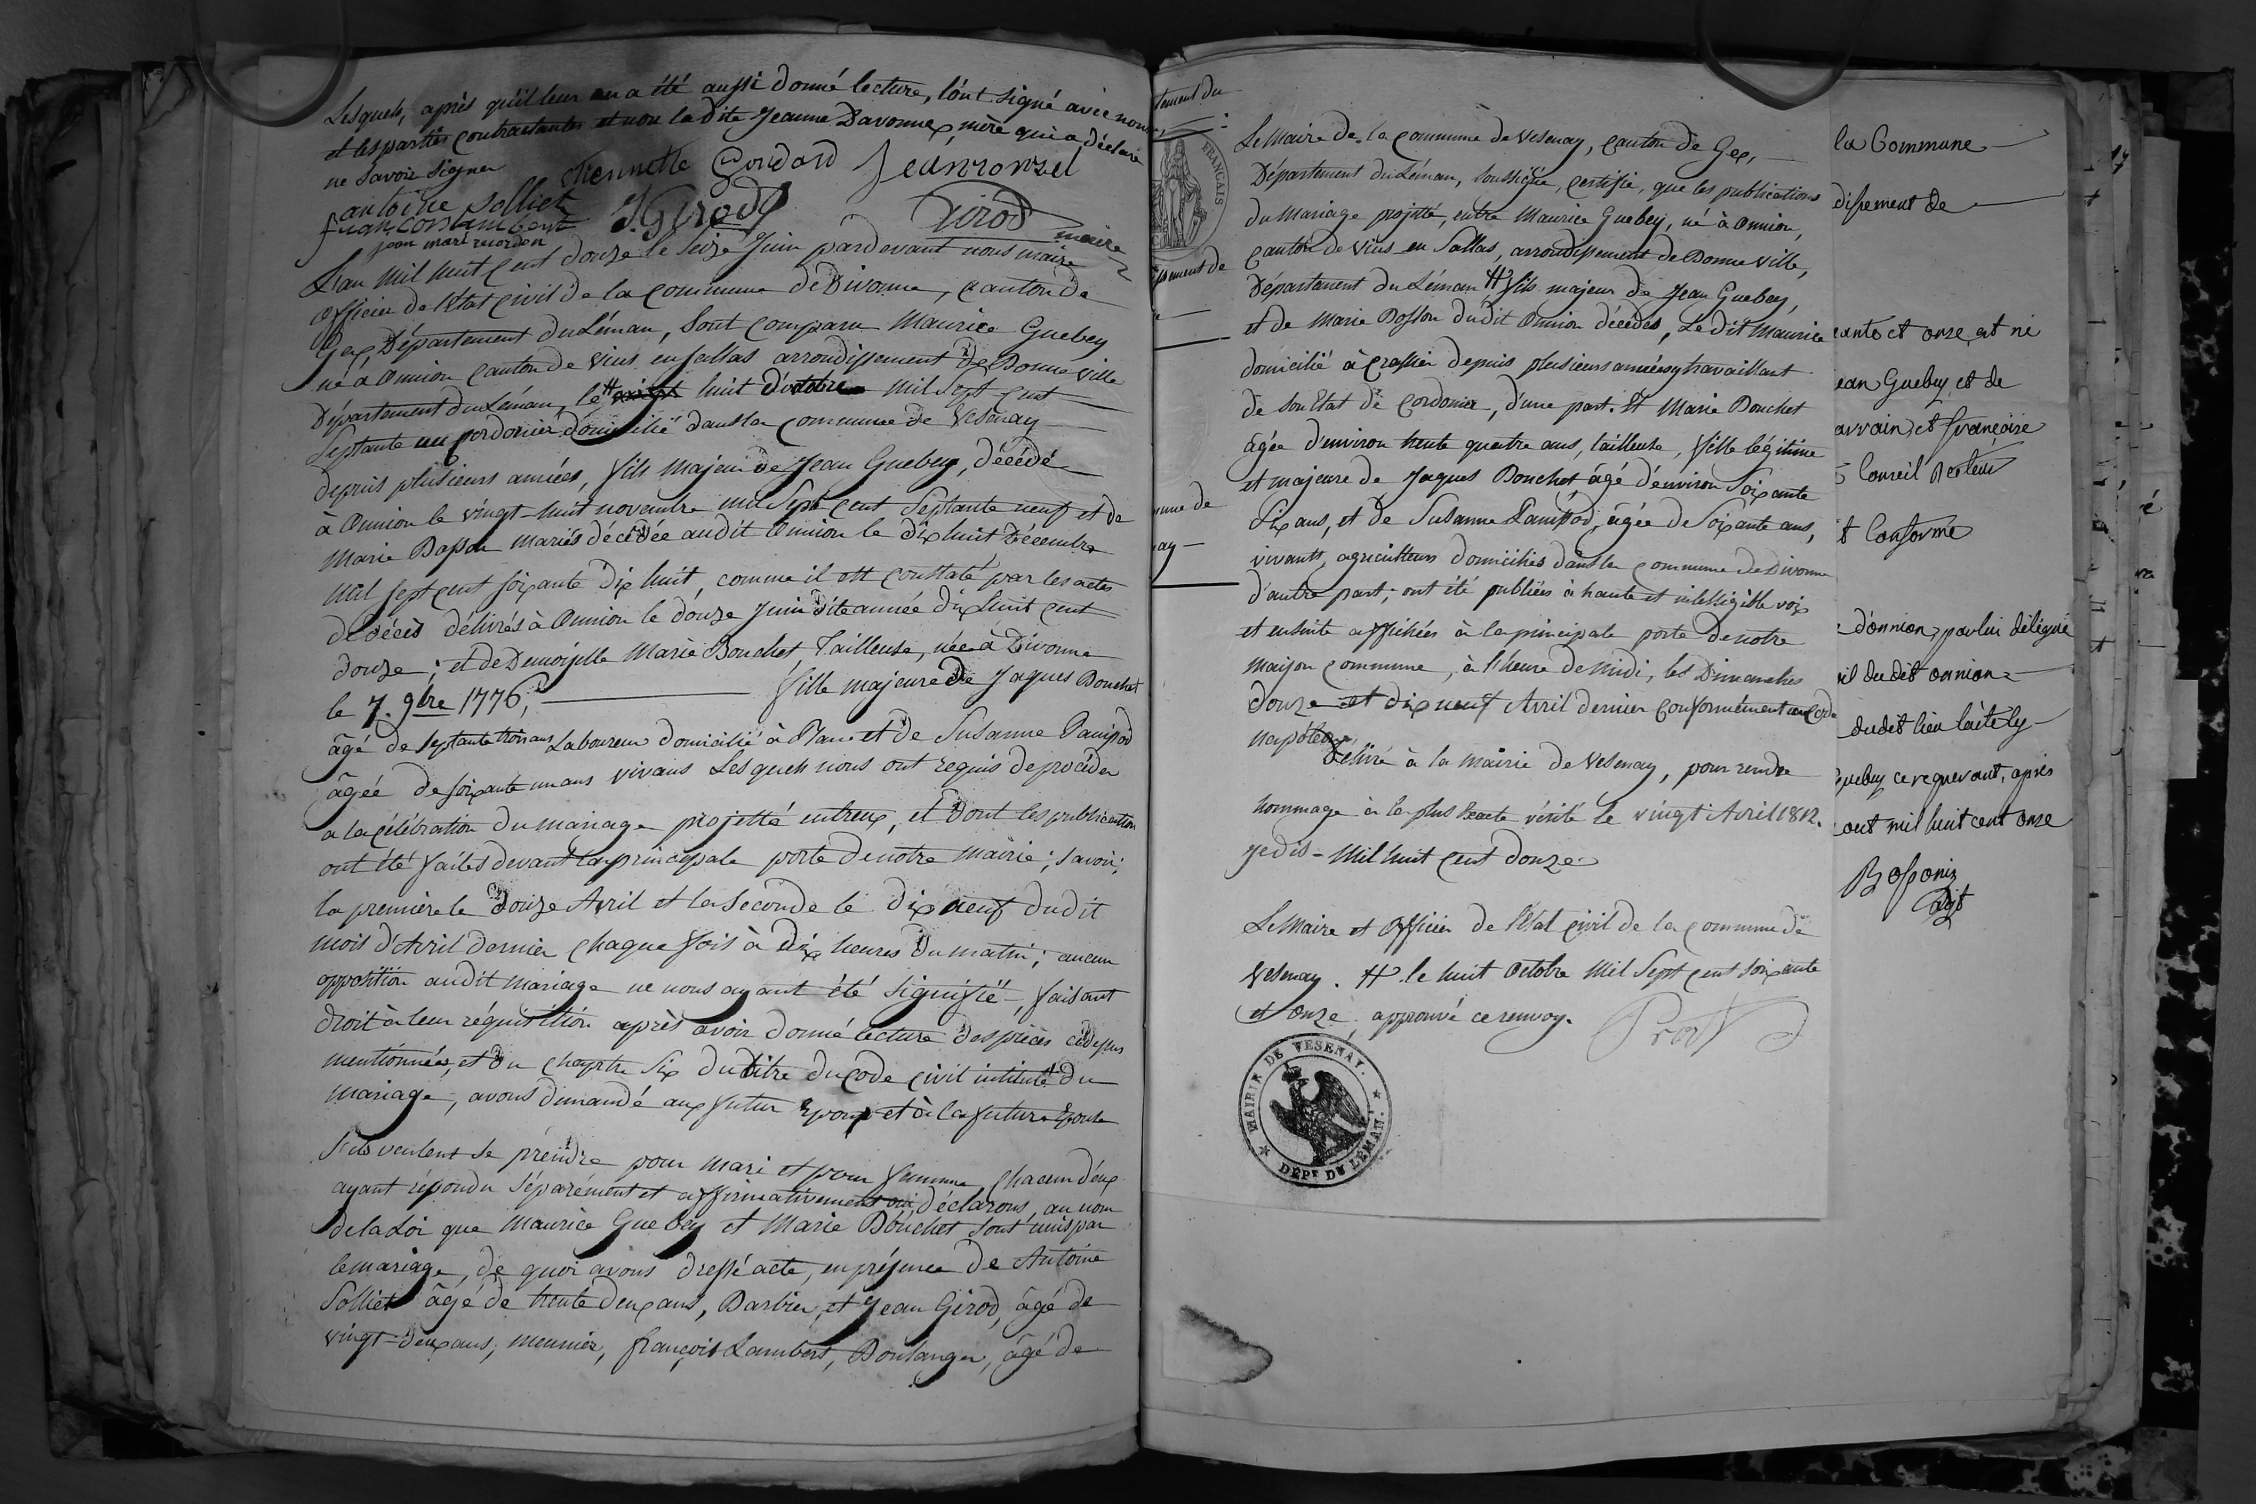 Lesquels, après qu'il leur en a été aussi donné lecture, l'ont signé avec nous
et les parties contractantes et non la dite Jeanne Davonnex mère qui a déclaré
ne savoir signer
Etiennette Goudard Jean ronzel
antoine Solliet
J. Girod Girod maire
françois lambert
jean mari
L'an mil huit cent douze le seize Juin pardevant nous maire
officier de l'Etat civil de la commune de Divonne, canton de
Gex, Département du Léman, sont comparu Maurice Guebey
né à Onnion canton de Vius en Sallas arrondissement de Bonneville
Département du Léman, le huit d'octobre mil sept cent
septante un cordonier domicilié dans la commune de Vesenay
depuis plusieurs années, fils majeur de Jean Guebey, décédé
à Onnion le vingt-huit novembre mil sept cent septante neuf et de
Marie Bosson mariés décédée audit Onnion le dix huit Décembre
mil sept cent soixante dix huit, comme il est constaté par les actes
de décès délivrés à Onnion le douze Juin dite année dix huit cent
douze ; et de Demoiselle Marie Bouchet, Tailleuse, née à Divonne
le 7. 9bre 1776, fille majeure de Jaques Bouchet
âgé de septante trois ans Laboureur domicilié à Plan et de Susanne Panissod
âgée de soixante un ans vivans Lesquels nous ont requis de procéder
a la célébration du mariage projetté entreux, et dont les publication
ont été faites devant la principale porte de notre mairie ; savoir ;
la première le douze Avril et la seconde le dix neuf dudit
mois d'Avril dernier chaque fois à dix heures du matin ; aucun
opposition audit mariage ne nous ayant été signifié, faisant
droit à leur réquisition après avoir donné lecture des pièces cidessus
mentionnées, et du chapitre six du titre du code civil intitulé du
mariage, avons demandé aux futur Epoux et à la future Epouse
s'ils veulent se prendre pour mari et pour femme, chacun d'eux
ayant répondu séparément et affirmativement oui déclarons, au nom
de la Loi que Maurice Guebey et Marie Bouchet sont unis par
le mariage, de quoi avons dressé acte, en présence de Antoine
Solliet âgé de trente deux ans, Barbier, et Jean Girod, âgé de
vingt-deux ans, meunier, françois Lambert, Boulanger, âgé de
tement du
FRANÇAIS
issement de
mune de
nay
Le Maire de la commune de Vesenay, canton de Gex,
Département du Léman, soussigné, certifie, que les publications
du Mariage projetté, entre Maurice Guebey, né à Onnion,
canton de Vius en Sallas, arrondissement de Bonneville,
Département du Léman # fils majeur de Jean Guebey,
et de Marie Bosson dudit Onnion décédés, Le dit Maurice
domicilié à Crassier depuis plusieurs années y travaillant
de son Etat de Cordonier, d'une part. Et Marie Bouchet
âgée d'environ trente quatre ans, tailleuse, fille légitime
et majeure de Jaques Bouchet âgé d'environ soixante
six ans, et de Susanne Panissod, âgée de soixante ans,
vivants, agriculteurs domiciliés dans la commune de Divonne
d'autre part ; ont été publiées à haute et intelligible voix
et ensuite affichées à la principale porte de notre
maison commune, à l'heure de midi, les Dimanches
douze et dix neuf Avril dernier conformément au Code
napoléon
Délivré à la mairie de Vesenay, pour rendre
hommage à la plus Exacte vérité le vingt Avril 1812.
je dis - Mil huit cent douze
Le Maire et Officier de l'Etat civil de la commune de
Vesenay. # le huit Octobre Mil Sept cent soixante
et onze, approuvé ce renvoy.
MAIRIE DE VESENAY.
DEPT DU LEMAN.
la Commune
dissement de
ante et onze, est né
ean Guebey et de
arrain, et françoise
Conseil
t Conforme
d'onnion, par lui délégué
il dudit onnion
dudit lieu
Guebey ce requerant, après
out mil huit cent onze
adjt